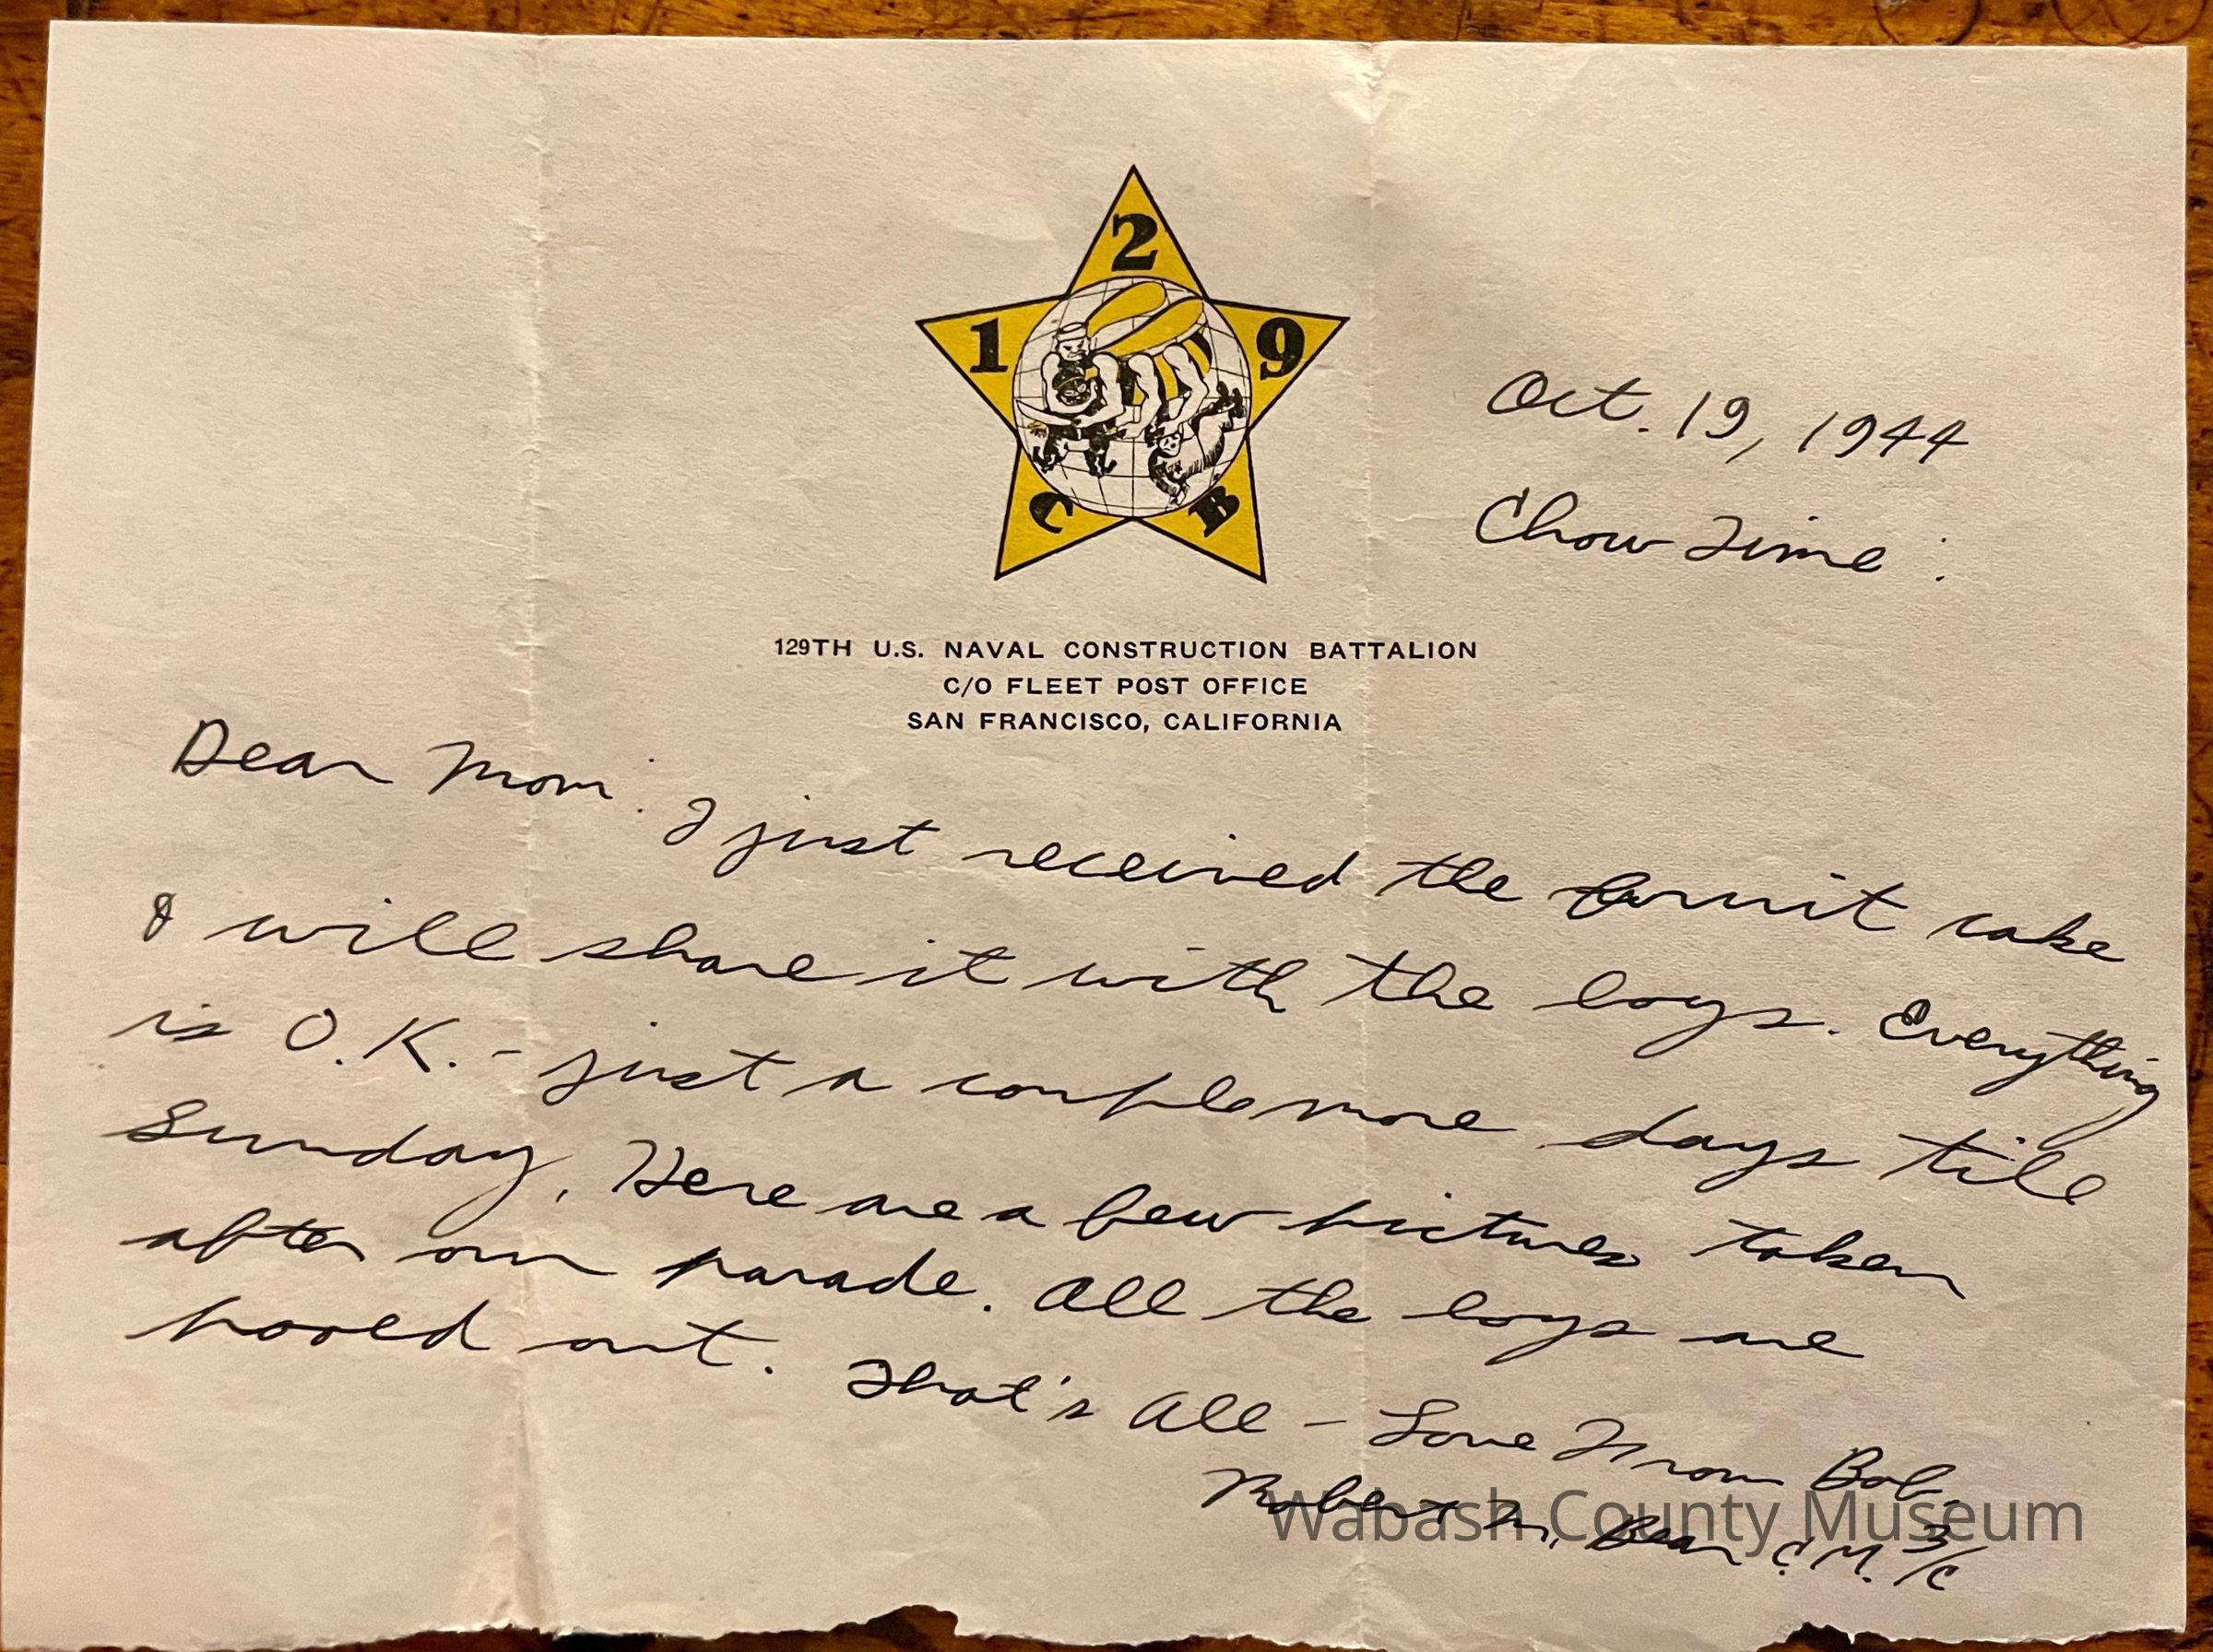 2
1 9
C B
Oct. 19, 1944
Chow Time:
129TH U.S. NAVAL CONSTRUCTION BATTALION
C/O FLEET POST OFFICE
SAN FRANCISCO, CALIFORNIA
Dear Mom: I just received the fruit cake
I will share it with the boys. Everything
is O.K. - just a couple more days till
Sunday. Here are a few pictures taken
after our parade. All the boys are
pooped out. That's All - Love From Bob.
Robert M. Bear C.M. 3/C
Wabash County Museum